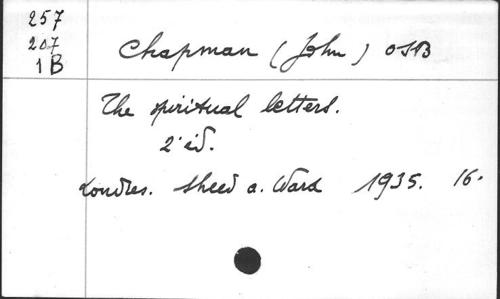 257
207
1B
Chapman (John) OSB
The spiritual letters.
2° éd.
Londres. Sheed a. Ward 1935. 16°